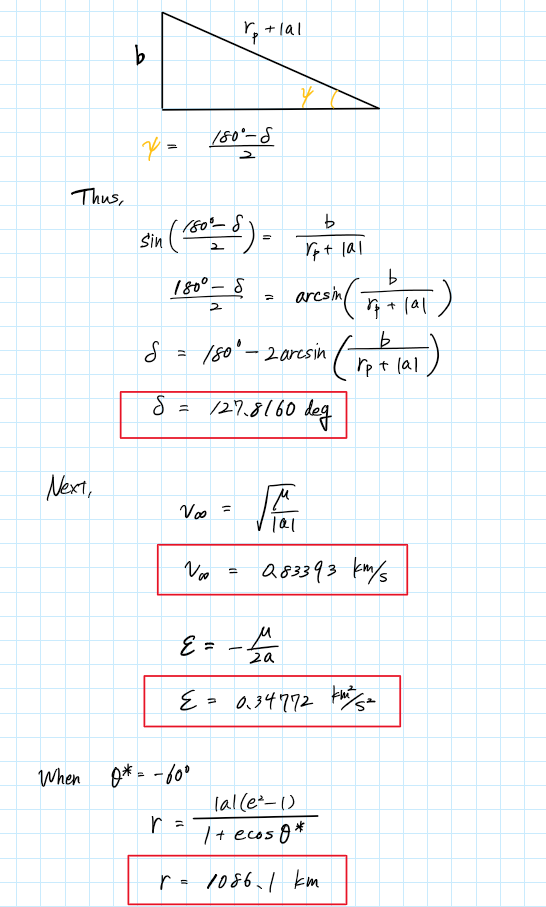 r_p + |a|
b
ψ
ψ = (180° - δ)/2
Thus,
sin((180° - δ)/2) = b/(r_p + |a|)
(180° - δ)/2 = arcsin(b/(r_p + |a|))
δ = 180° - 2arcsin(b/(r_p + |a|))
δ = 127.8160 deg
Next,
v_∞ = √(μ/|a|)
v_∞ = 0.83393 km/s
ℰ = -μ/2a
ℰ = 0.34772 km²/s²
When θ* = -60°
r = |a|(e²-1)/(1 + e cos θ*)
r = 1086.1 km